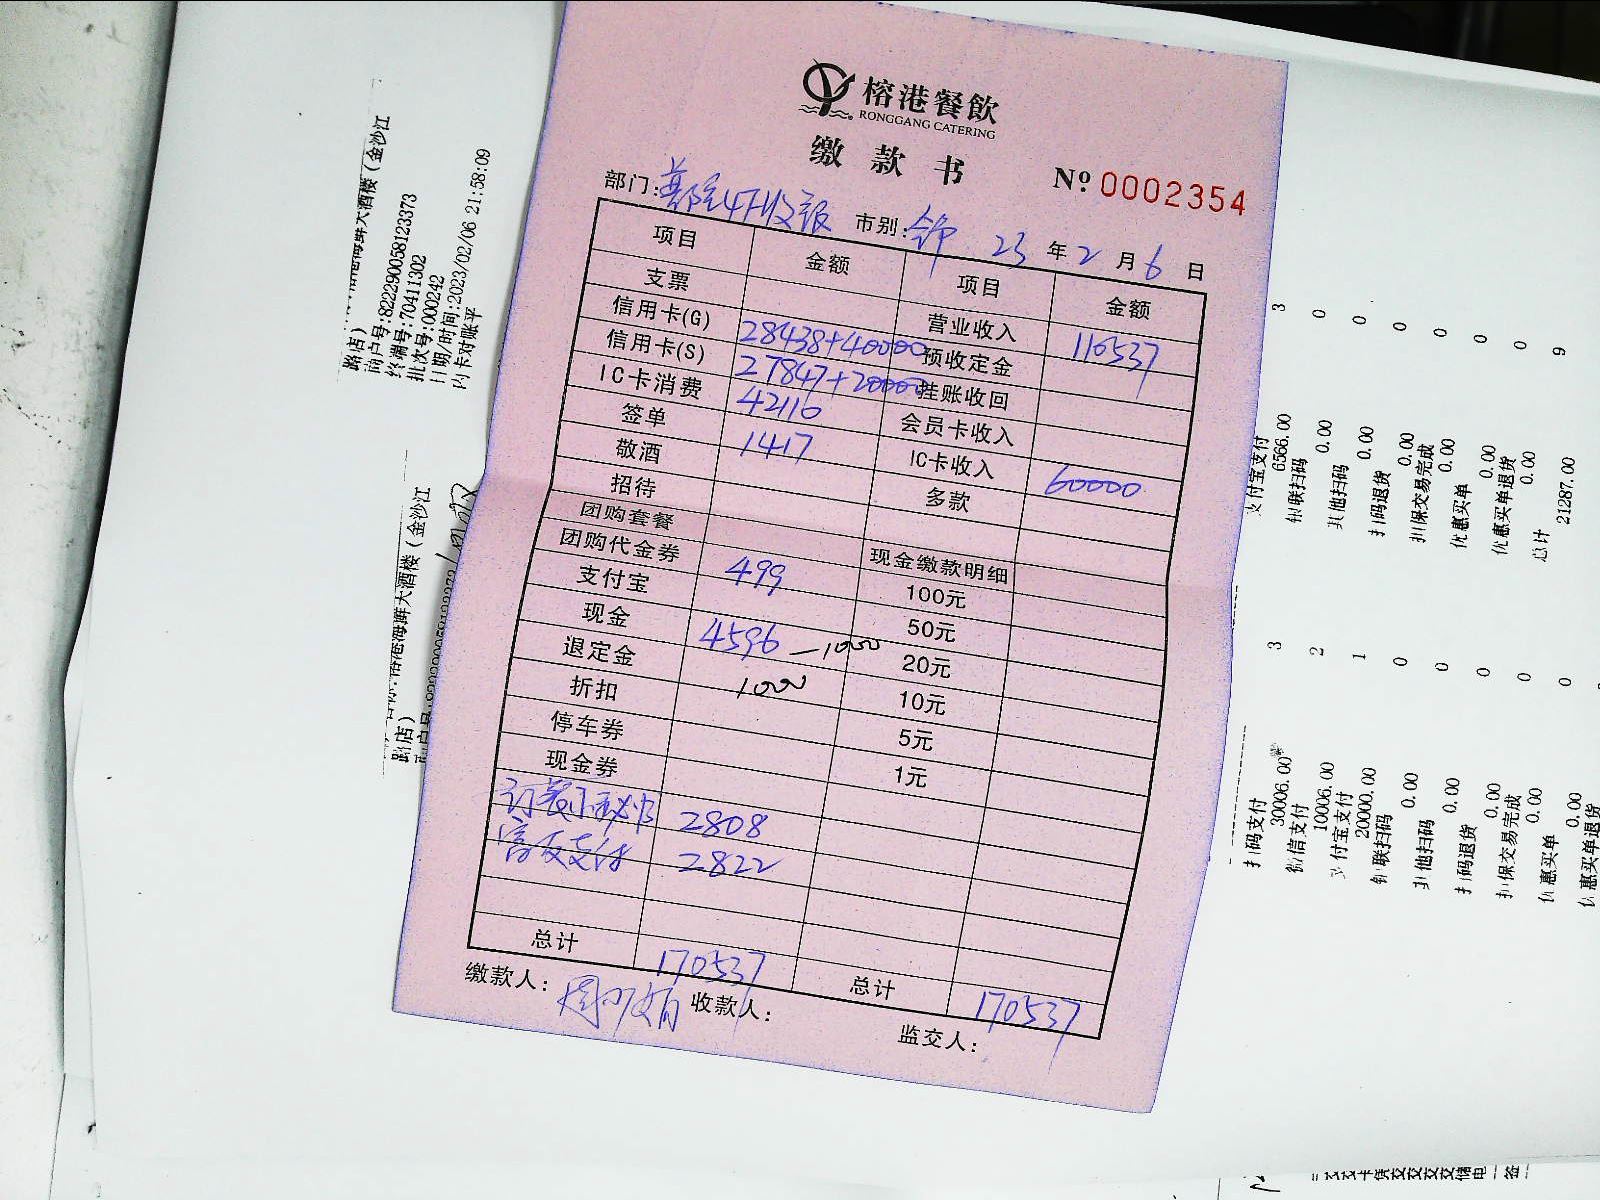 榕港餐飲
RONGGANG CATERING
缴款书
Nº 0002354
部门: 4F收银 市别: 23 年 2 月 6 日
项目 金额 项目 金额
支票 营业收入 110537
信用卡(G) 28438+40000 预收定金
信用卡(S) 27847+20000 挂账收回
IC卡消费 42110 会员卡收入
签单 1417 IC卡收入 60000
敬酒 多款
招待
团购套餐 现金缴款明细
团购代金券 499 100元
支付宝 50元
现金 4596 -1000 20元
退定金 1000 10元
折扣 5元
停车券 1元
现金券
订餐小秘书 2808
富友支付 2822
总计 170537 总计 170537
缴款人: 收款人:
监交人:
大酒楼(金沙江
路店)
商户号:822290058123373
终端号:70411302
批次号:000242
日期/时间:2023/02/06 21:58:09
内卡对账平
大酒楼(金沙江
路店)
3
0
0
0
0
0
0
9
支付宝支付
6566.00
银联扫码
0.00
其他扫码
0.00
扫码退货
0.00
担保交易完成
0.00
优惠买单
0.00
优惠买单退货
0.00
总计
21287.00
3
2
1
0
0
0
0
0
扫码支付
30006.00
微信支付
10006.00
支付宝支付
20000.00
银联扫码
0.00
其他扫码
0.00
扫码退货
0.00
担保交易完成
0.00
优惠买单
0.00
优惠买单退货